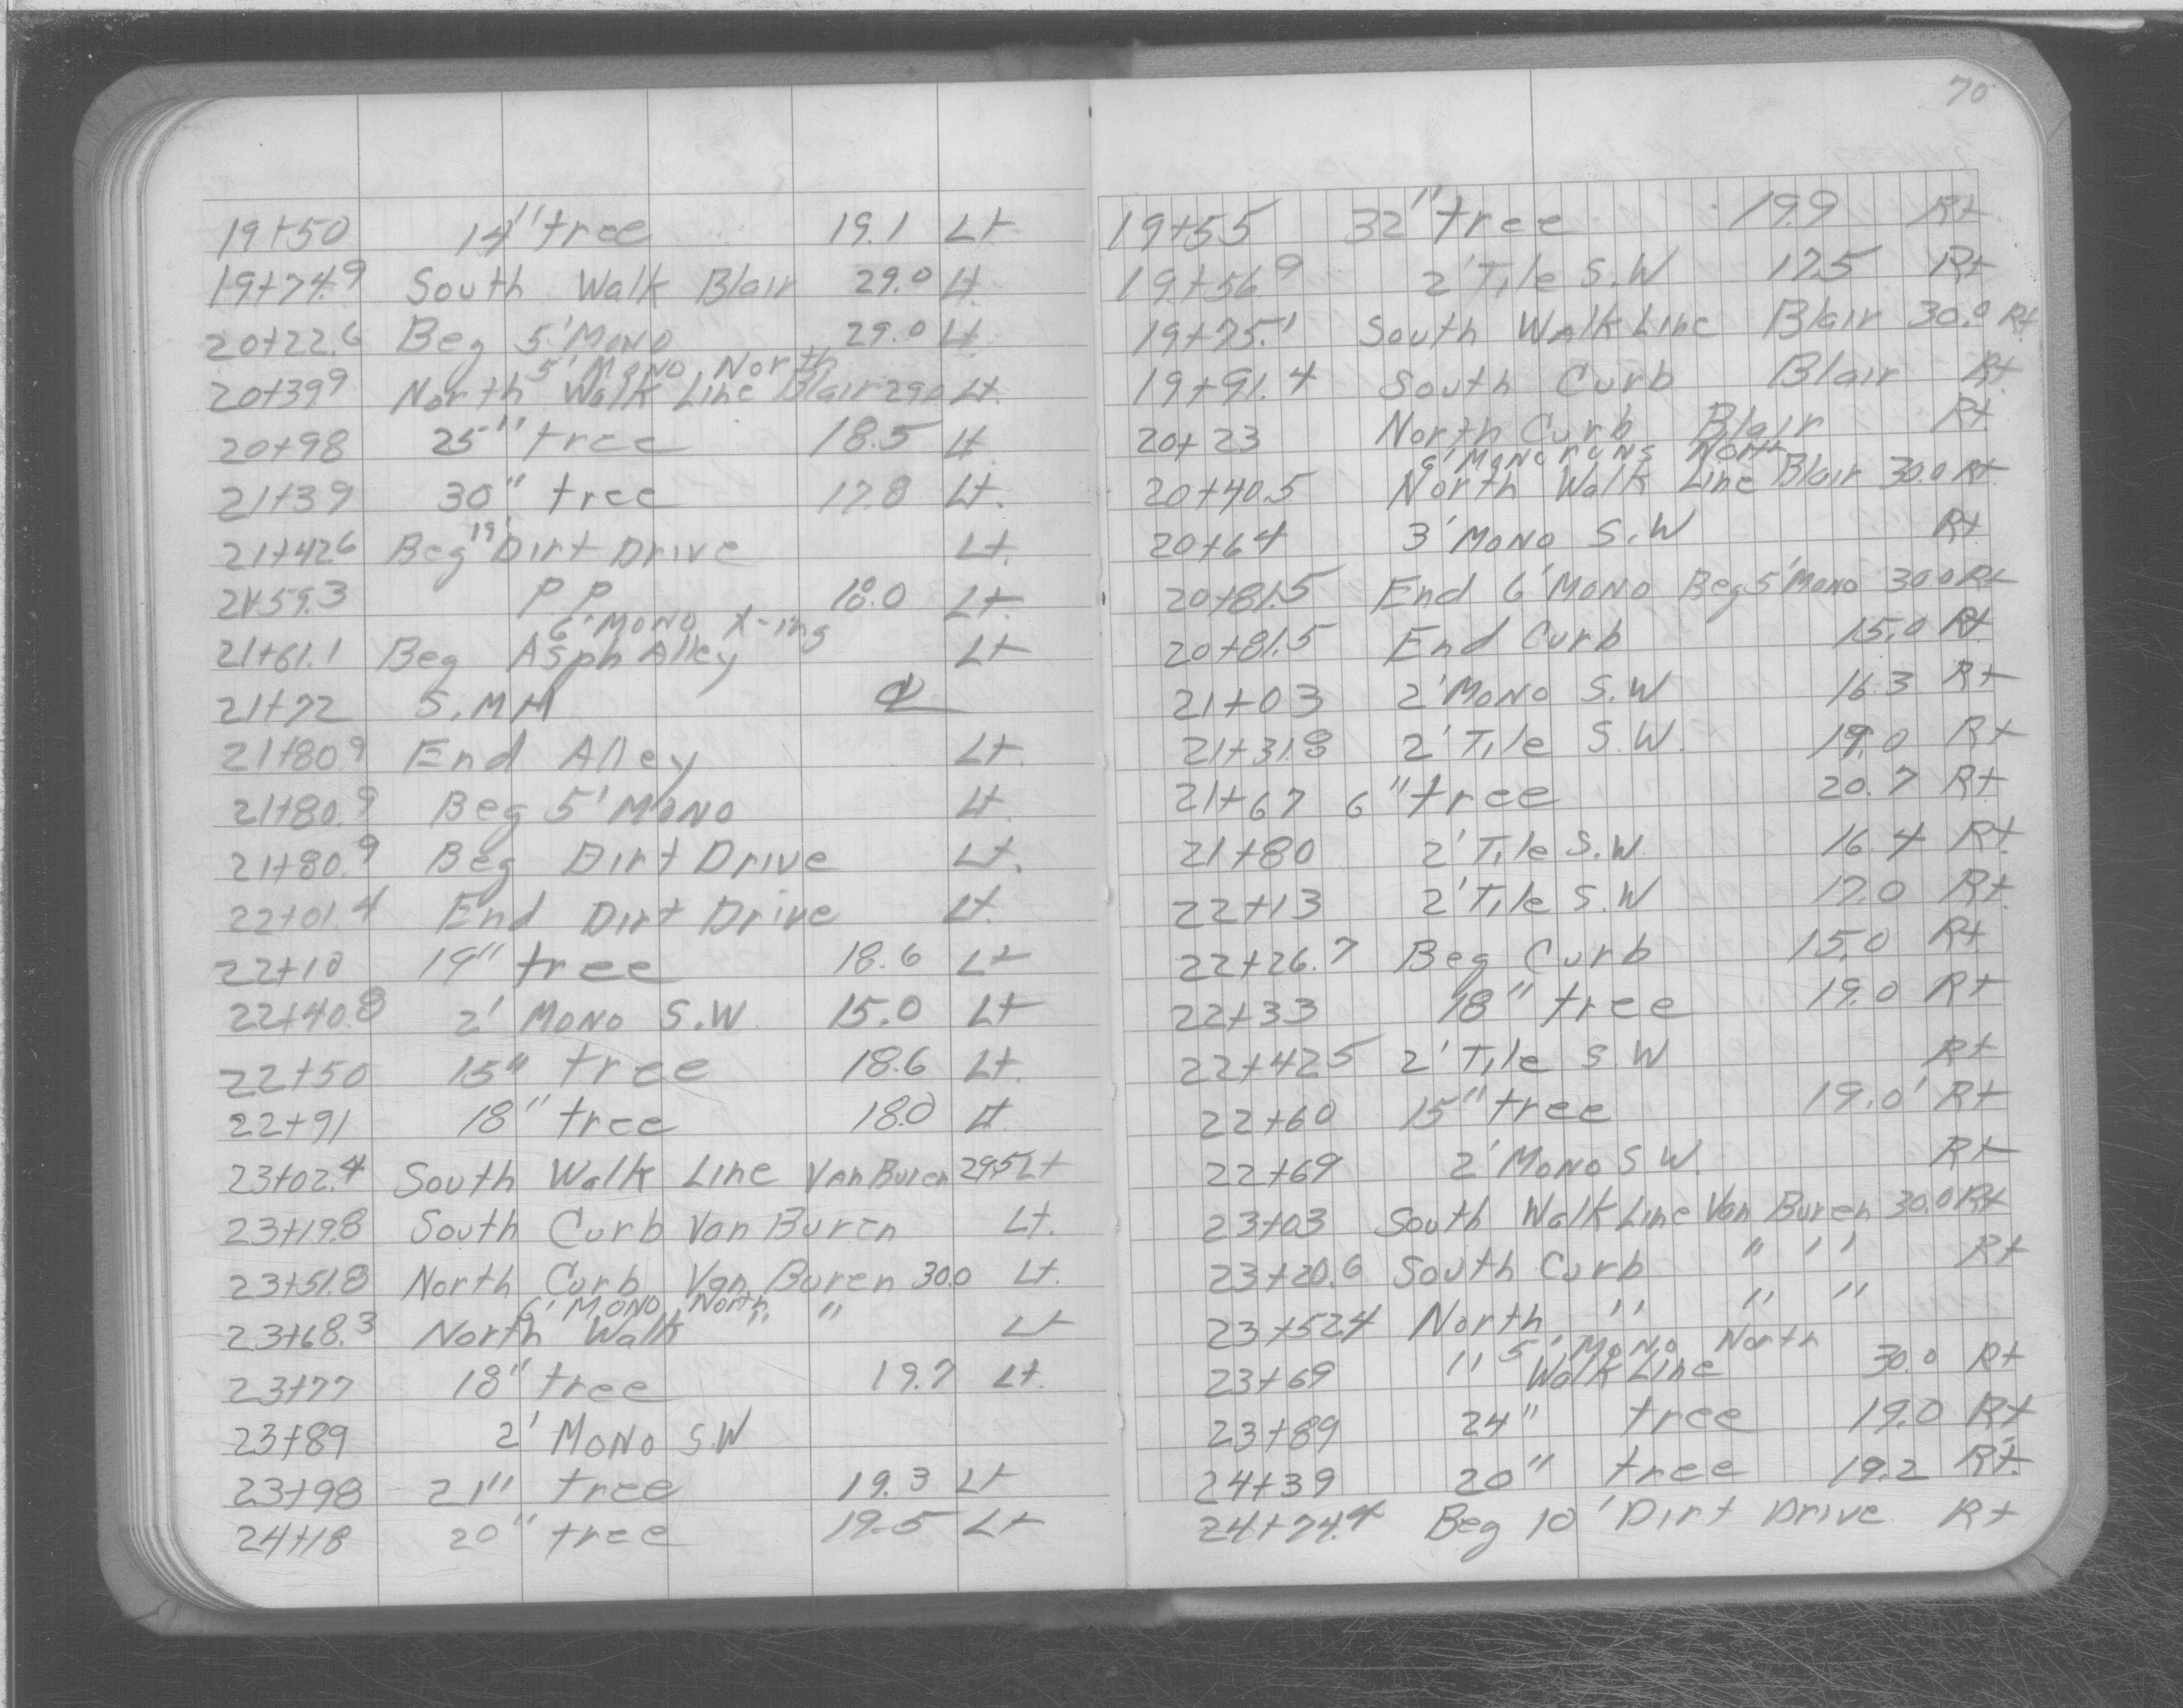 19+50 14" tree 19.1 Lt
19+74.9 South Walk Blair 29.0 Lt.
20+22.6 Beg 5' Mono 29.0 Lt.
5' Mono North
20+39.9 North Walk Line Blair 29.0 Lt.
20+98 25" tree 18.5 Lt
21+39 30" tree 17.8 Lt.
21+42.6 Beg 19' Dirt Drive Lt.
21+59.3 P P 18.0 Lt.
6' Mono X-ing
21+61.1 Beg Asph Alley Lt
21+72 S.M H
21+80.9 End Alley Lt.
21+80.9 Beg 5' Mono Lt.
21+80.9 Beg Dirt Drive Lt.
22+01.4 End Dirt Drive Lt.
22+10 19" tree 18.6 Lt
22+40.8 2' Mono S.W. 15.0 Lt
22+50 15" tree 18.6 Lt.
22+91 18" tree 18.0 Lt.
23+02.4 South Walk Line Van Buren 29.5 Lt
23+19.8 South Curb Van Buren Lt.
23+51.8 North Curb Van Buren 30.0 Lt.
6' Mono North
23+68.3 North Walk " " Lt
23+77 18" tree 19.7 Lt.
23+89 2' Mono S.W
23+98 21" tree 19.3 Lt
24+18 20" tree 19.5 Lt
70
19+55 32" tree 19.9 Rt
19+56.9 2' Tile S.W 17.5 Rt
19+75.1 South Walk Line Blair 30.0 Rt
19+91.4 South Curb Blair Rt
20+23 North Curb Blair Rt
6' Mono runs North
20+40.5 North Walk Line Blair 30.0 Rt
20+64 3' Mono S.W Rt
20+81.5 End 6' Mono Beg 5' Mono 30.0 Rt
20+81.5 End Curb 15.0 Rt
21+03 2' Mono S.W 16.3 Rt
21+31.8 2' Tile S.W. 19.0 Rt
21+67 6" tree 20.7 Rt
21+80 2' Tile S.W. 16.4 Rt
22+13 2' Tile S.W 17.0 Rt.
22+26.7 Beg Curb 15.0 Rt
22+33 18" tree 19.0 Rt
22+42.5 2' Tile S.W Rt
22+60 15" tree 19.0' Rt
22+69 2' Mono S.W. Rt
23+03 South Walk Line Van Buren 30.0 Rt
23+20.6 South Curb " " Rt
23+52.4 North " " "
5' Mono North
23+69 " Walk Line 30.0 Rt
23+89 24" tree 19.0 Rt
24+39 20" tree 19.2 Rt.
24+74.4 Beg 10' Dirt Drive Rt